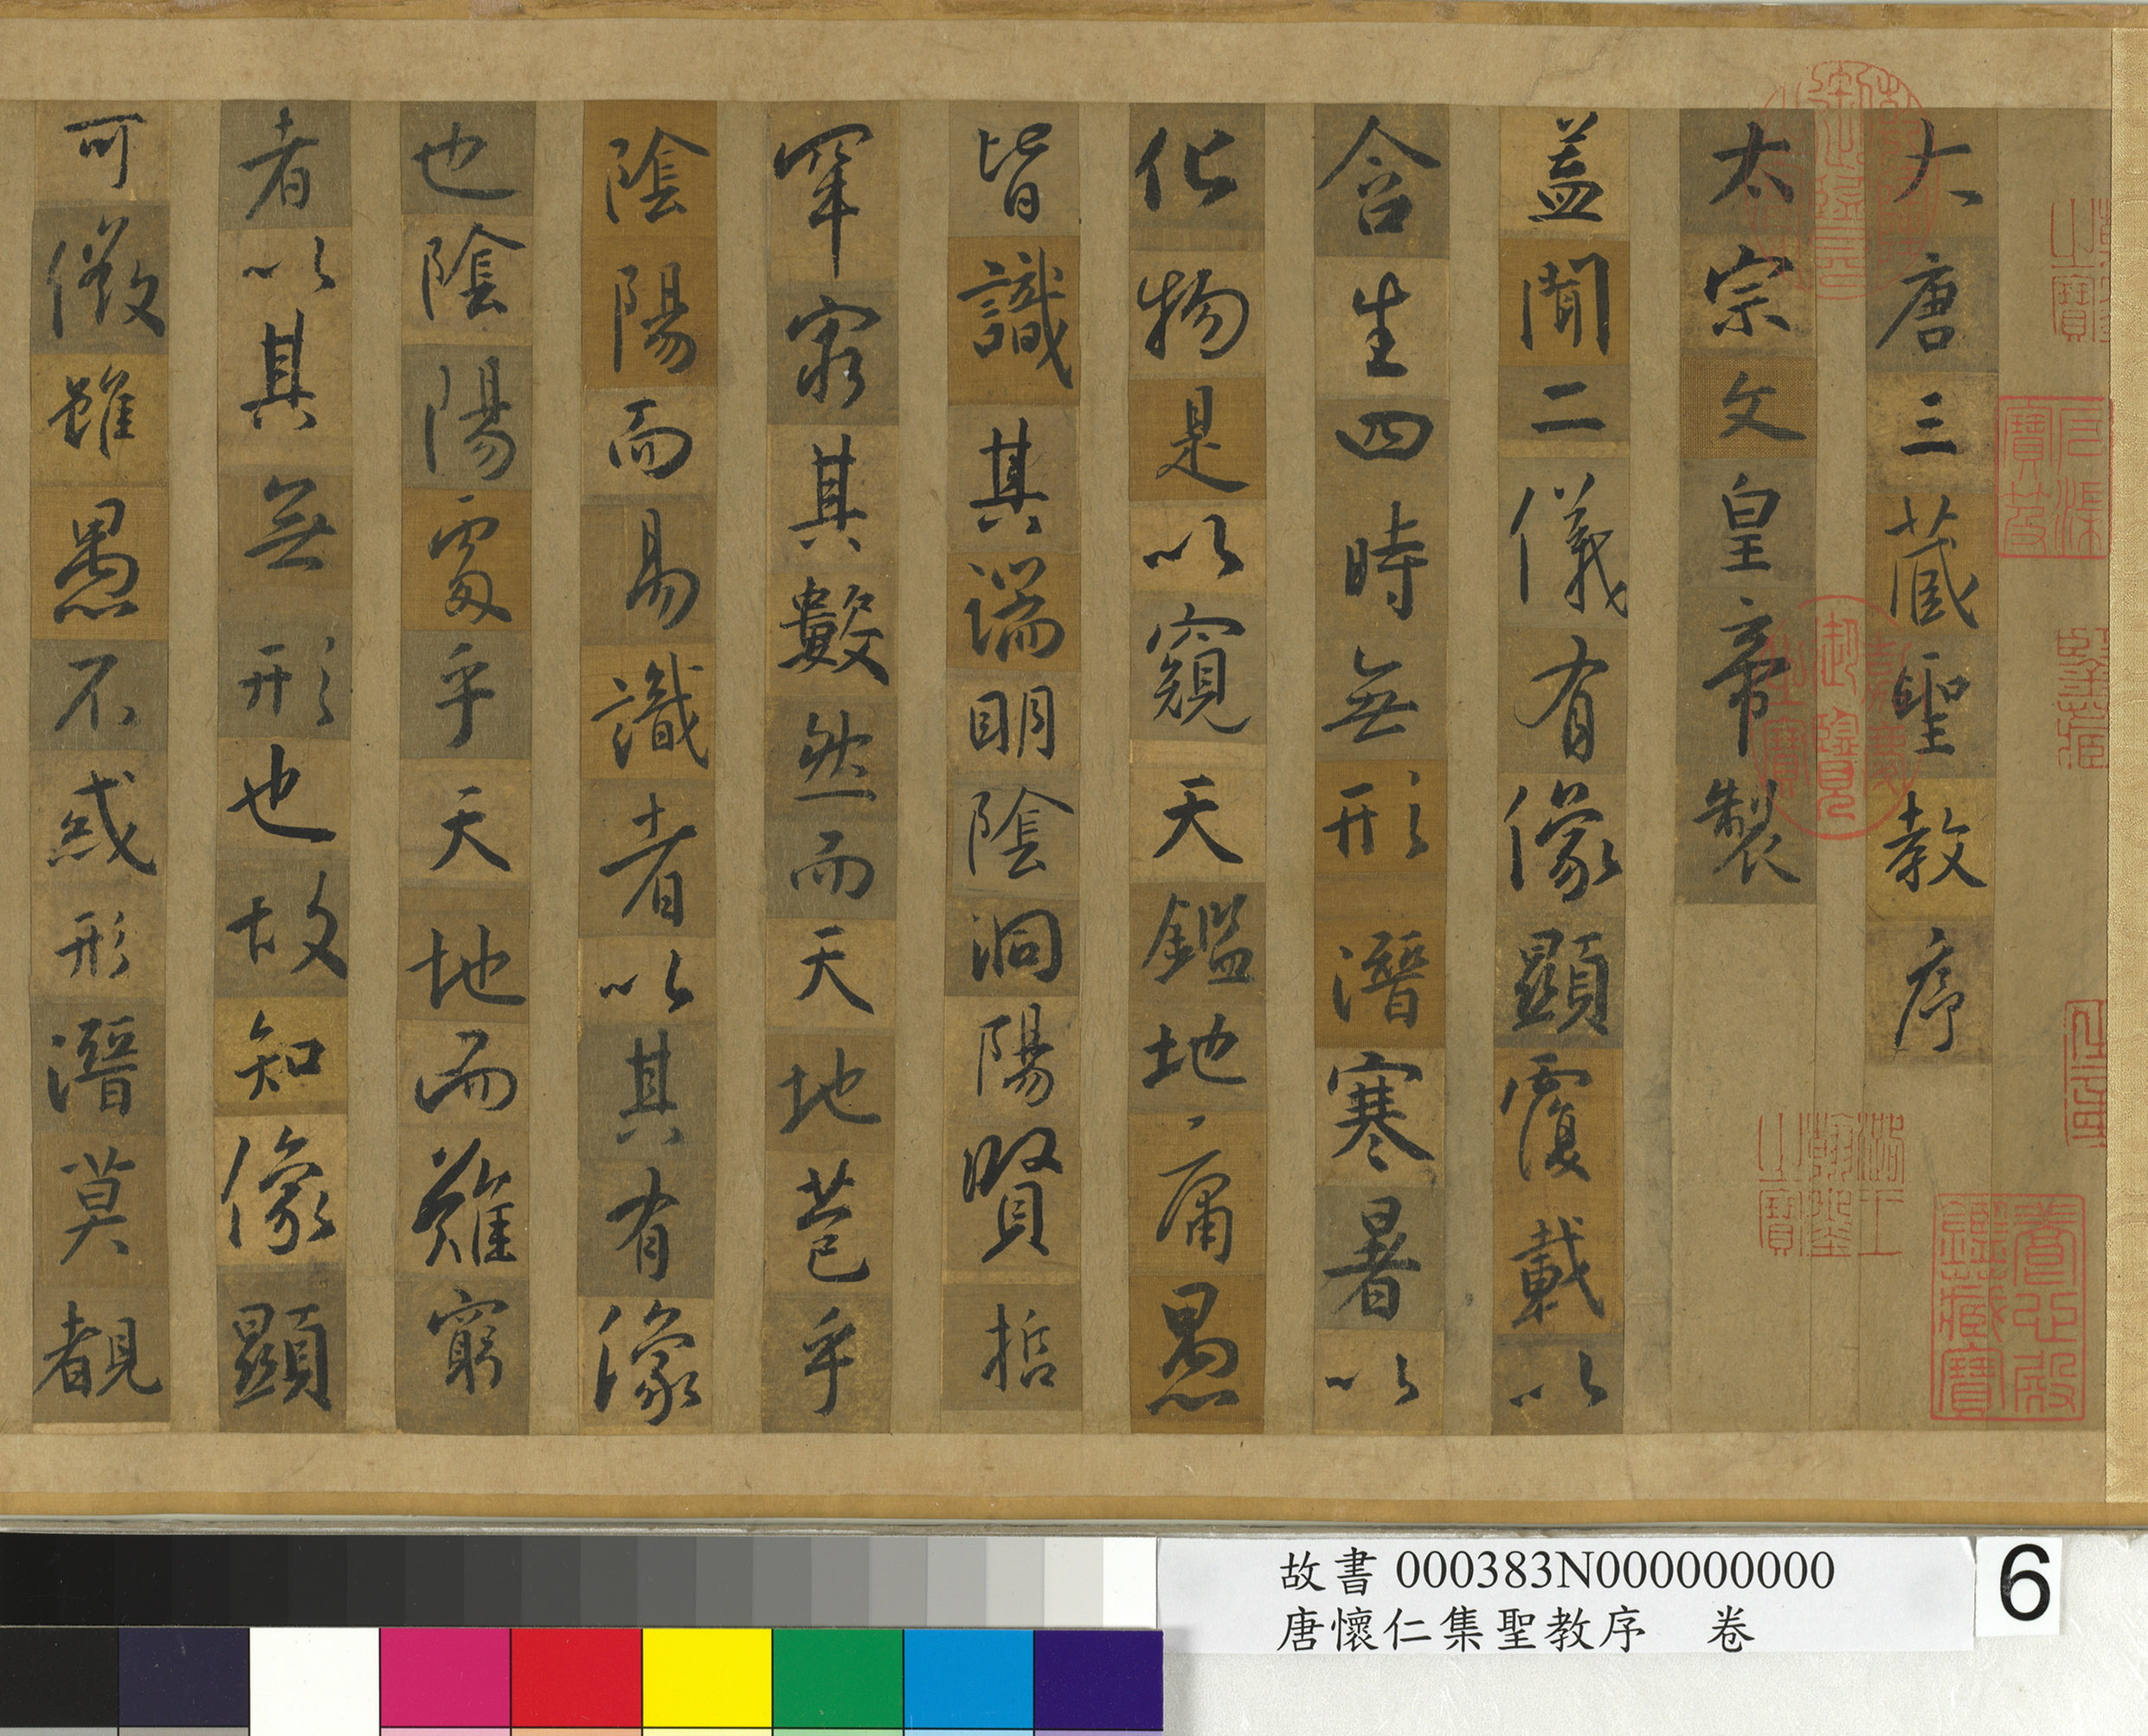 大唐三藏聖教序
太宗文皇帝製
盖聞二儀有像顯覆載以
含生四時無形潛寒暑以
化物是以窺天鑑地庸愚
皆識其端明陰洞陽賢哲
罕窮其數然而天地苞乎
陰陽而易識者以其有像
也陰陽處乎天地而難窮
者以其無形也故知像顯
可徵雖愚不惑形潛莫覩
嘉慶御覽之寶
養心殿鑑藏寶
石渠寶笈
故書 000383N000000000
唐懷仁集聖教序 卷
6